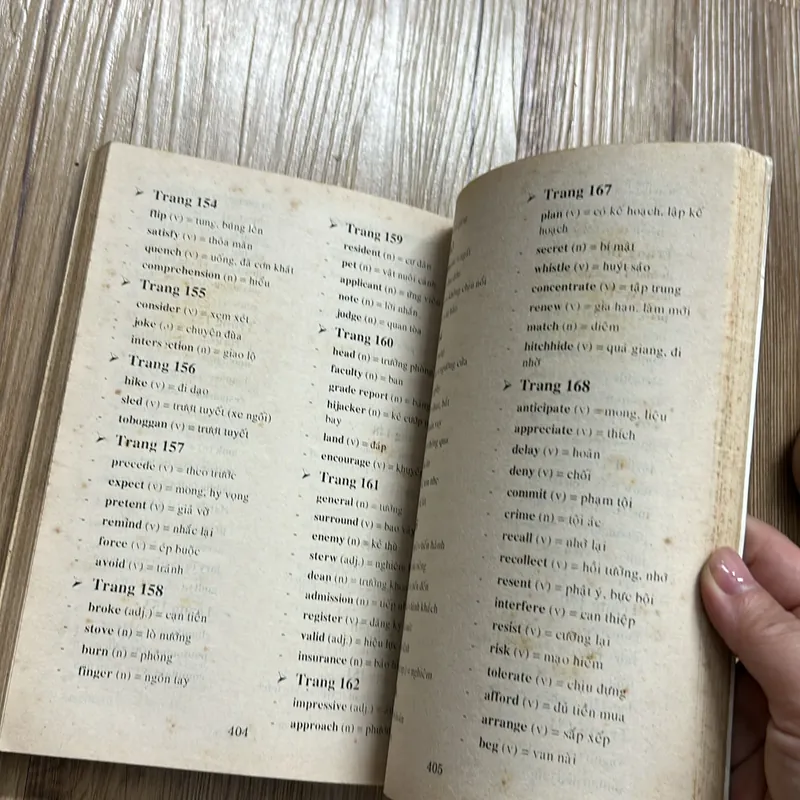 Trang 154
flip (v) = tung, búng lên
satisfy (v) = thỏa mãn
quench (v) = uống, đã cơn khát
comprehension (n) = hiểu
Trang 155
consider (v) = xem xét
joke (v) = chuyện đùa
intersection (n) = giao lộ
Trang 156
hike (v) = đi dạo
sled (v) = trượt tuyết (xe ngồi)
toboggan (v) = trượt tuyết
Trang 157
precede (v) = theo trước
expect (v) = mong, hy vọng
pretent (v) = giả vờ
remind (v) = nhắc lại
force (v) = ép buộc
avoid (v) = tránh
Trang 158
broke (adj.) = cạn tiền
stove (n) = lò nướng
burn (n) = phỏng
finger (n) = ngón tay
Trang 159
resident (n) = cư dân
pet (n) = vật nuôi cảnh
applicant (n) = ứng viên
note (n) = lời nhắn
judge (n) = quan tòa
Trang 160
head (n) = trưởng phòng
faculty (n) = ban
grade report (n) =
hijacker (n) = kẻ cướp
bay
land (v) = đáp
encourage (v) =
Trang 161
general (n) = tướng
surround (v) = bao
enemy (n) = kẻ thù
sterw (adj.) =
dean (n) = trưởng
admission (n) = tiếp
register (v) = đăng ký
valid (adj.) = hiệu
insurance (n) = bảo
Trang 162
impressive (adj.) =
approach (n) =
404
Trang 167
plan (v) = có kế hoạch, lập kế
hoạch
secret (n) = bí mật
whistle (v) = huýt sáo
concentrate (v) = tập trung
renew (v) = gia hạn, làm mới
match (n) = diêm
hitchhide (v) = quá giang, đi
nhờ
Trang 168
anticipate (v) = mong, liệu
appreciate (v) = thích
delay (v) = hoãn
deny (v) = chối
commit (v) = phạm tội
crime (n) = tội ác
recall (v) = nhớ lại
recollect (v) = hồi tưởng, nhớ
resent (v) = phật ý, bực bội
interfere (v) = can thiệp
resist (v) = cưỡng lại
risk (v) = mạo hiểm
tolerate (v) = chịu đựng
afford (v) = đủ tiền mua
arrange (v) = sắp xếp
beg (v) = van nài
405